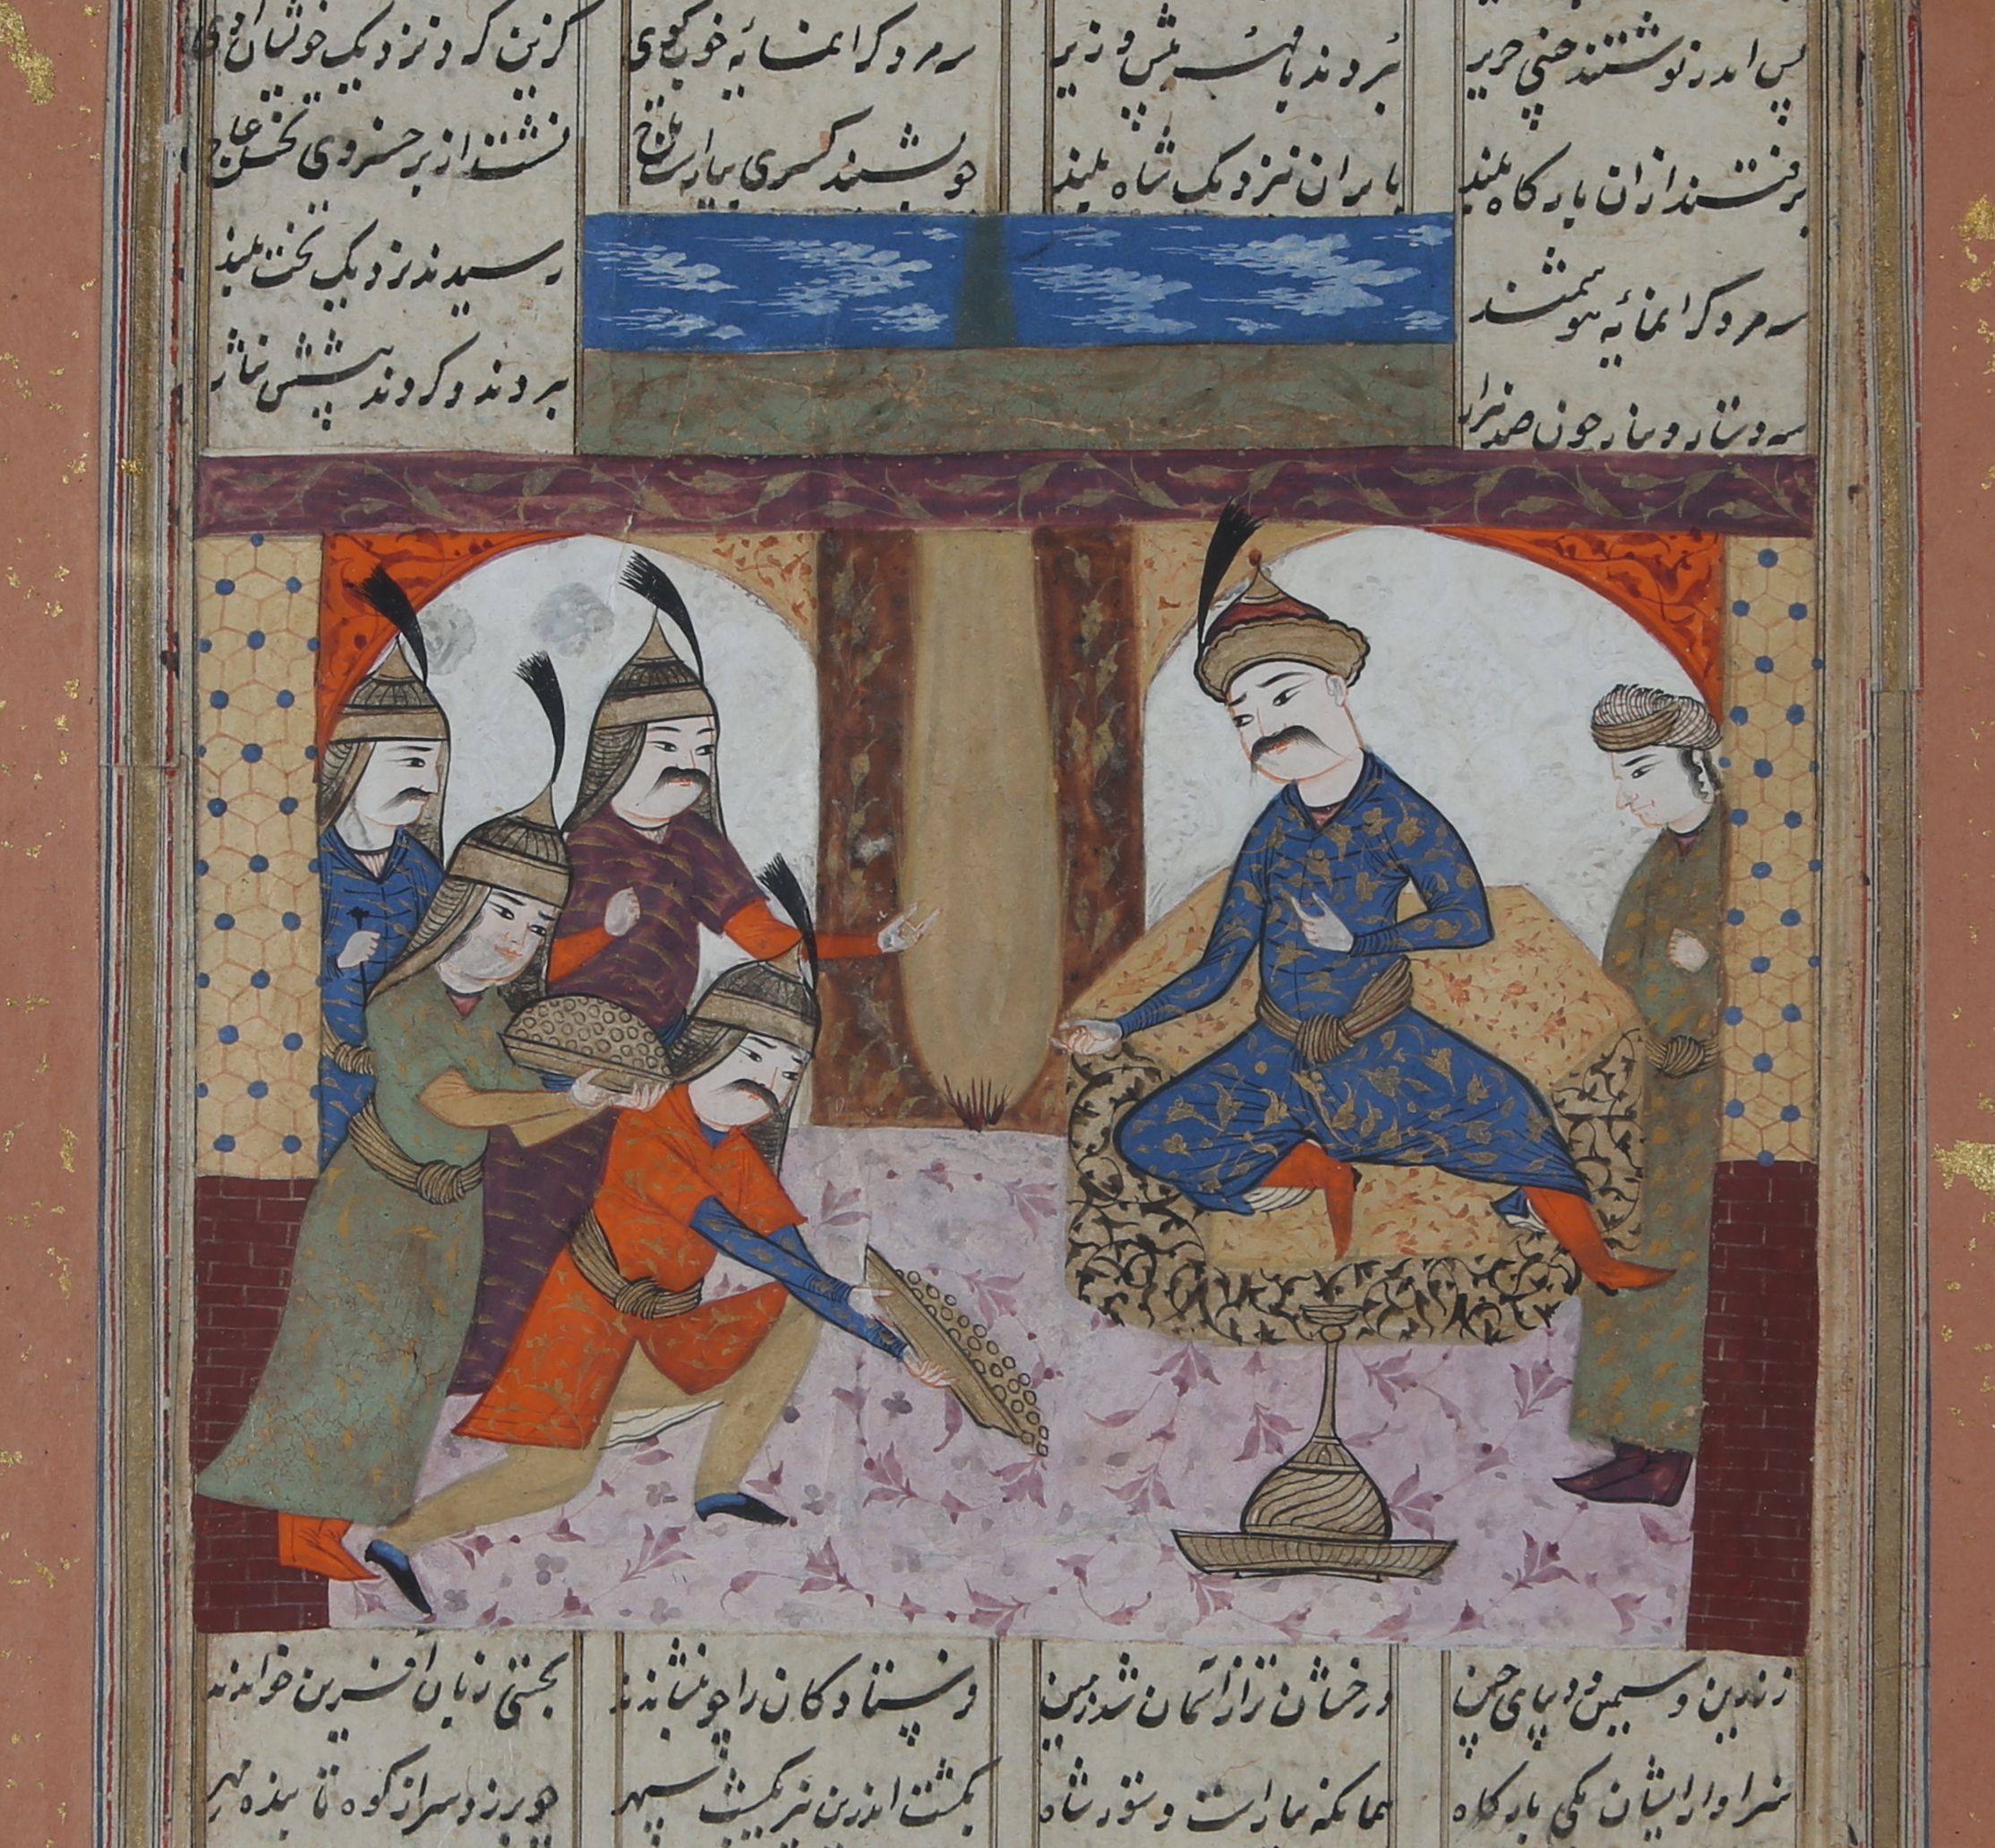 پس اندر نوشتند چینی حریر ببردند با مهر پیش وزیر سه مرد گرانمایه خوب گوی گزین کرد نزدیک خویشان اوی
برفتند ازان بارگاه بلند بایران نزدیک شاه بلند چو بشنید کسری بیاراست تاج نشست از بر خسروی تخت عاج
سه مرد گرانمایه هوشمند رسیدند نزدیک تخت بلند
سه دستار دینار چون صد هزار ببردند و کردند پیشش نثار
ز زرین و سیمین و دیبای چین درخشان تر از آسمان شد زمین فرستادگان را چو بنشاندند بچینی زبان آفرین خواندند
سزاوار ایشان یکی بارگاه همانگه بیاراست دستور شاه بگشت اندرین نیز یکشب سپهر چو برزد سر از کوه تابنده مهر